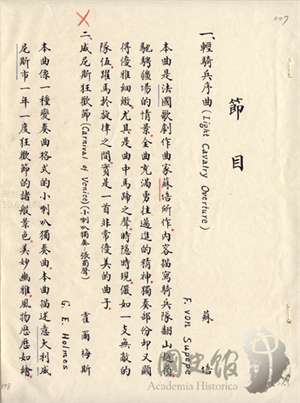 節目
一、輕騎兵序曲(Light Cavalry Overture)
蘇培
F. von Suppe
本曲是法國歌劇作曲家蘇培所作,內容描寫騎兵隊翻山越嶺
馳騁疆場的情景,全曲充滿勇往邁進的精神,獨奏部份却又顯
得優雅細緻,尤其是曲中馬蹄之聲,時隱時現,儼如一支無敵的
隊伍躍馬於旋律之間,實是一首非常優美的曲子。
二、威尼斯狂歡節(Carnival of Venice)(小喇叭獨奏 張菊聲)
霍爾梅斯
G. E. Holmes
本曲像一種變奏曲格式的小喇叭獨奏曲,本曲描述意大利威
尼斯市一年一度狂歡節的諸般景色,美妙幽雅,風物歷歷如繪
國史館
Academia Historica